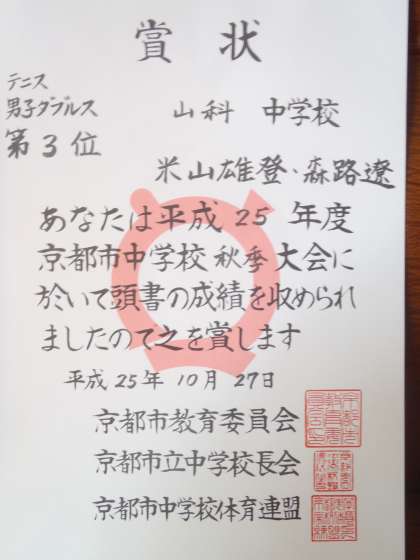 賞状
テニス
男子ダブルス
山科 中学校
第3位
米山雄登・森路遼
あなたは平成25年度
京都市中学校秋季大会に
於いて頭書の成績を収められ
ましたので之を賞します
平成25年10月27日
京都市教育委員会
京都市立中学校長会
京都市中学校体育連盟